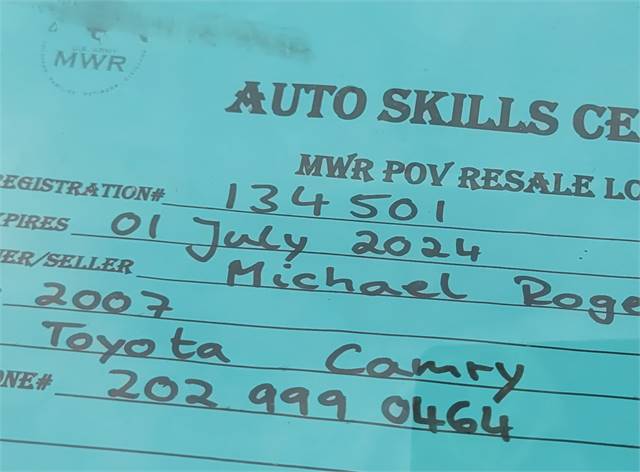 U.S. ARMY
MWR
AUTO SKILLS CE
MWR POV RESALE LO
EGISTRATION# 134 501
XPIRES 01 July 2024
ER/SELLER Michael Roge
2007
Toyota Camry
ONE# 202 999 0464